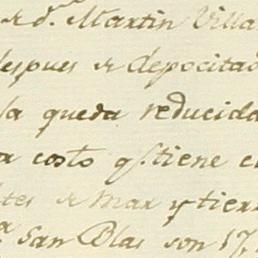 de d.n Martin Villa
despues de depocitad
la queda reducida
a costo q.e tiene e
tes de Mar y tier
San Blas son 17,